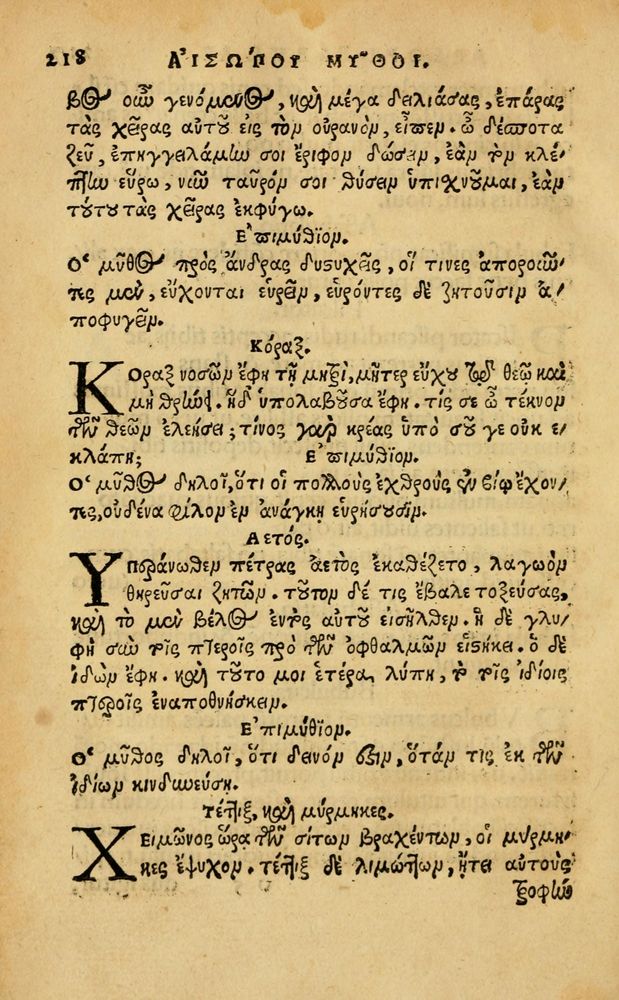 218 ΑἸΣΩΠΟΥ ΜΥ͂ΘΟΙ.
βος οὖν γενόμενος, καὶ μέγα δειλιάσας, ἐπάρας
τὰς χεῖρας αὐτοῦ εἰς τὸν οὐρανὸν, εἶπεν. ὦ δέσποτα
ζεῦ, ἐπηγγειλάμην σοι ἔριφον δώσειν, ἐὰν τὸν κλέ-
πτην εὕρω, νῦν ταῦρόν σοι θύσειν ὑπισχνοῦμαι, ἐὰν
τούτου τὰς χεῖρας ἐκφύγω.
Ἐπιμύθϊον.
Ὁ μῦθος πρὸς ἄνδρας δυστυχεῖς, οἵ τινες ἀποροιῶν-
τες μὲν, εὔχονται εὑρεῖν, εὑρόντες δὲ ζητοῦσιν ἀ-
ποφυγεῖν.
Κόραξ.
ΚΟραξ νοσῶν ἔφη τῇ μητρὶ, μῆτερ εὔχου τῷ θεῷ καὶ
μὴ θρήνει. ἡ δ' ὑπολαβοῦσα ἔφη. τίς σε ὦ τέκνον
τῶν θεῶν ἐλεήσει; τίνος γὰρ κρέας ὑπὸ σοῦ γε οὐκ ἐ-
κλάπη; Ἐπιμύθϊον.
Ὁ μῦθος δηλοῖ, ὅτι οἱ πολλοὺς ἐχθροὺς ἐν βίῳ ἔχον-
τες, οὐδένα φίλον ἐν ἀνάγκῃ εὑρήσουσιν.
Ἀετός.
ΥΠεράνωθεν πέτρας ἀετὸς ἐκαθέζετο, λαγωὸν
θηρεῦσαι ζητῶν. τοῦτον δέ τις ἔβαλε τοξεύσας,
καὶ τὸ μὲν βέλος ἐντὸς αὐτοῦ εἰσῆλθεν. ἡ δὲ γλυ-
φὴ σὺν τοῖς πτεροῖς πρὸ τῶν ὀφθαλμῶν εἱστήκει. ὁ δὲ
ἰδὼν ἔφη. καὶ τοῦτό μοι ἑτέρα λύπη, τὸ τοῖς ἰδίοις
πτεροῖς ἐναποθνήσκειν.
Ἐπιμύθϊον.
Ὁ μῦθος δηλοῖ, ὅτι δεινόν ἐστιν, ὅτάν τις ἐκ τῶν
ἰδίων κινδυνεύσῃ.
Τέττιξ, καὶ μύρμηκες.
ΧΕιμῶνος ὥρᾳ τῶν σίτων βραχέντων, οἱ μύρμη-
κες ἔψυχον. τέττιξ δὲ λιμώττων, ᾔτει αὐτοὺς
τροφὴν